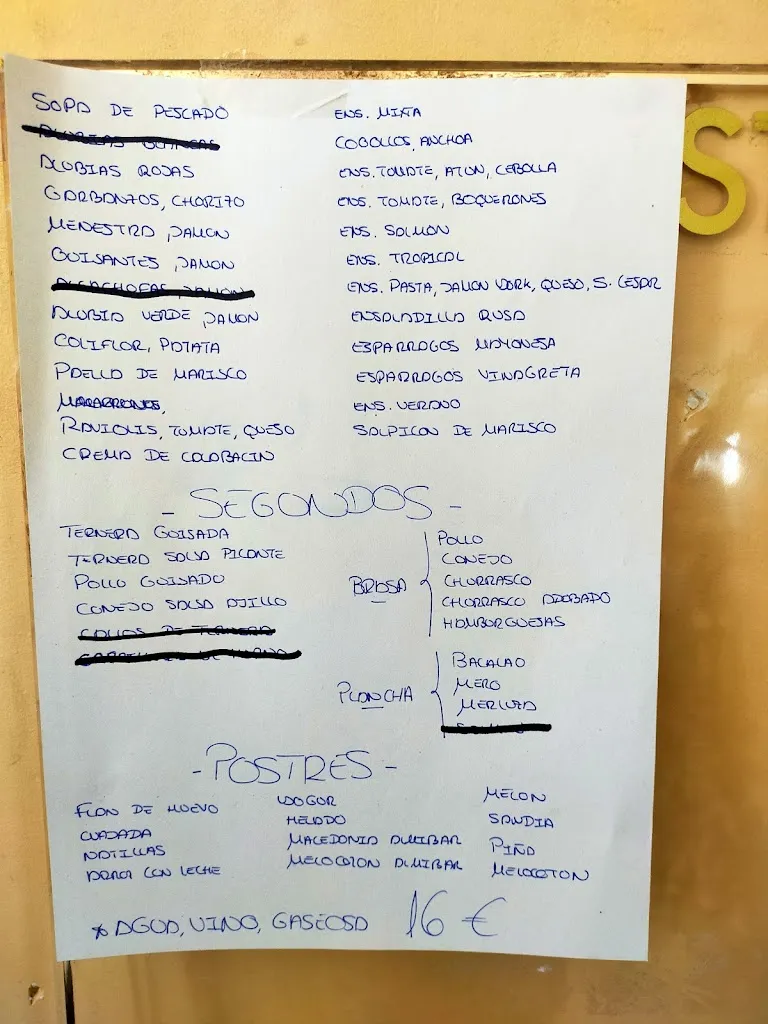 SOPA DE PESCADO
ALUBIAS ROJAS
GARBANZOS, CHORIZO
MENESTRA, JAMON
GUISANTES, JAMON
ALCACHOFAS, JAMON
ALUBIA VERDE, JAMON
COLIFLOR, PATATA
PAELLA DE MARISCO
MACARRONES,
RAVIOLIS, TOMATE, QUESO
CREMA DE CALABACIN
ENS. MIXTA
COGOLLOS, ANCHOA
ENS. TOMATE, ATUN, CEBOLLA
ENS. TOMATE, BOQUERONES
ENS. SALMON
ENS. TROPICAL
ENS. PASTA, JAMON YORK, QUESO, S. CESAR
ENSALADILLA RUSA
ESPARRAGOS MAYONESA
ESPARRAGOS VINAGRETA
ENS. VERANO
SALPICON DE MARISCO
- SEGUNDOS -
TERNERA GUISADA
TERNERA SALSA PICANTE
POLLO GUISADO
CONEJO SALSA AJILLO
CALLOS DE TERNERA
BRASA
POLLO
CONEJO
CHURRASCO
CHURRASCO ADOBADO
HAMBURGUESAS
PLANCHA
BACALAO
MERO
MERLUZA
- POSTRES -
FLAN DE HUEVO
CUAJADA
NATILLAS
ARROZ CON LECHE
YOGUR
HELADO
MACEDONIA ALMIBAR
MELOCOTON ALMIBAR
MELON
SANDIA
PIÑA
MELOCOTON
* AGUA, VINO, GASEOSA 16 €
S